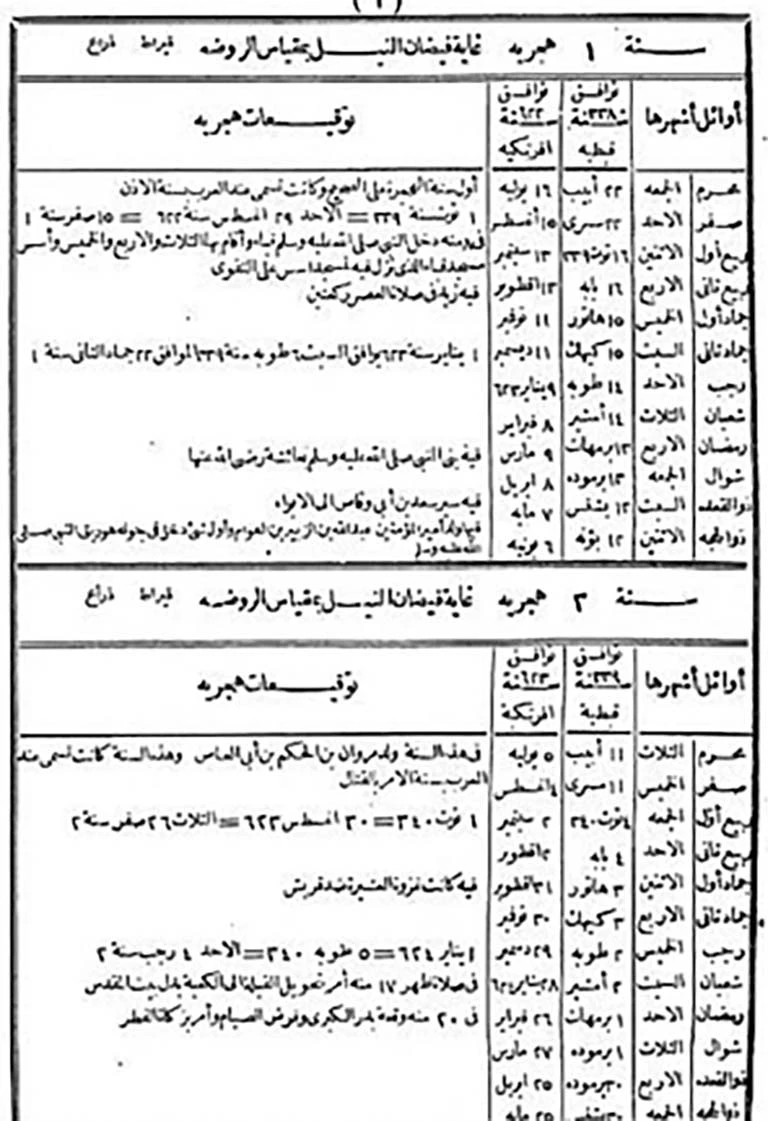 (١)
سنة ١ هجرية غاية فيضان النيل بمقياس الروضه قيراط ذراع
أوائل أشهرها توافق سنة ٣٣٨ قبطيه توافق سنة ٦٢٢ افرنكيه توقيعات هجريه
محرم الجمعه ٢٢ أبيب ١٦ يوليه أول سنة الهجرة على الصحيح وكانت تسمى عند العرب سنة الاذن
صفر الاحد ٢٢ مسرى ١٥ أغسطس ١ توت سنة ٣٣٩ = الاحد ٢٩ اغسطس سنة ٦٢٢ = ١٥ صفر سنة ١
ربيع أول الاثنين ١٦ توت ٣٣٩ ١٣ سبتمبر منه دخل النبي صلى الله عليه وسلم قباء وأقام بها الثلاث والاربع والخميس وأسس
مسجد قباء الذى نزل فيه لمسجد اسس على التقوى
ربيع ثانى الاربع ١٦ بابه ١٣ اقطوبر فيه زيد فى صلاة العصر ركعتين
جماد أول الخميس ١٥ هاتور ١١ نوفبر
جماد ثانى السبت ١٥ كيهك ١١ ديسمبر ١ يناير سنة ٦٢٣ يوافق السبت ٦ طوبه سنة ٣٣٩ الموافق ٢٢ جماد الثانى سنة ١
رجب الاحد ١٤ طوبه ٩ يناير ٦٢٣
شعبان الثلاث ١٤ أمشير ٨ فبراير
رمضان الاربع ١٣ برمهات ٩ مارس فيه بنى النبي صلى الله عليه وسلم بعائشة رضى الله عنها
شوال الجمعه ١٣ برموده ٨ ابريل
ذوالقعده السبت ١٢ بشنس ٧ مايه فيه سير سعد بن أبي وقاص الى الابواء
ذوالحجه الاثنين ١٢ بؤنه ٦ يونيه فيها ولد أمير المؤمنين عبد الله بن الزبير بن العوام وأول شئ دخل فى جوفه هو ريق النبي صلى
الله عليه وسلم
سنة ٢ هجريه غاية فيضان النيل بمقياس الروضه قيراط ذراع
أوائل أشهرها توافق سنة ٣٣٩ قبطية توافق سنة ٦٢٣ افرنكية توقيعات هجريه
محرم الثلاث ١١ أبيب ٥ يوليه فى هذه السنة ولد مروان بن الحكم بن أبى العاص وهذه السنة كانت تسمى عند
العرب سنة الامر بالقتال
صفر الخميس ١١ مسرى ٤ اغسطس
ربيع أول الجمعه ٤ توت ٣٤٠ ٢ سبتمبر ١ توت ٣٤٠ = ٣٠ اغسطس ٦٢٣ = الثلاث ٢٦ صفر سنة ٢
ربيع ثانى الاحد ٤ بابه ٢ اقطوبر
جماد أول الاثنين ٣ هاتور ٣١ اقطوبر فيه كانت غزوة العشيرة ضد قريش
جماد ثانى الاربع ٣ كيهك ٣٠ نوفبر
رجب الخميس ٢ طوبه ٢٩ دسمبر ١ يناير ٦٢٤ = ٥ طوبه ٣٤٠ = الاحد ٤ رجب سنة ٢
شعبان السبت ٢ أمشير ٢٨ يناير ٦٢٤ فى صلاة ظهر ١٧ منه أمر بتحويل القبلة الى الكعبة بدل بيت المقدس
رمضان الاحد ١ برمهات ٢٦ فبراير فى ٢٠ منه وقعة بدر الكبرى وفرض الصيام وأمر بزكاة الفطر
شوال الثلاث ١ برموده ٢٧ مارس
ذوالقعده الاربع ٣٠ برموده ٢٥ ابريل
ذوالحجه الجمعه ٣٠ بشنس ٢٥ مايه